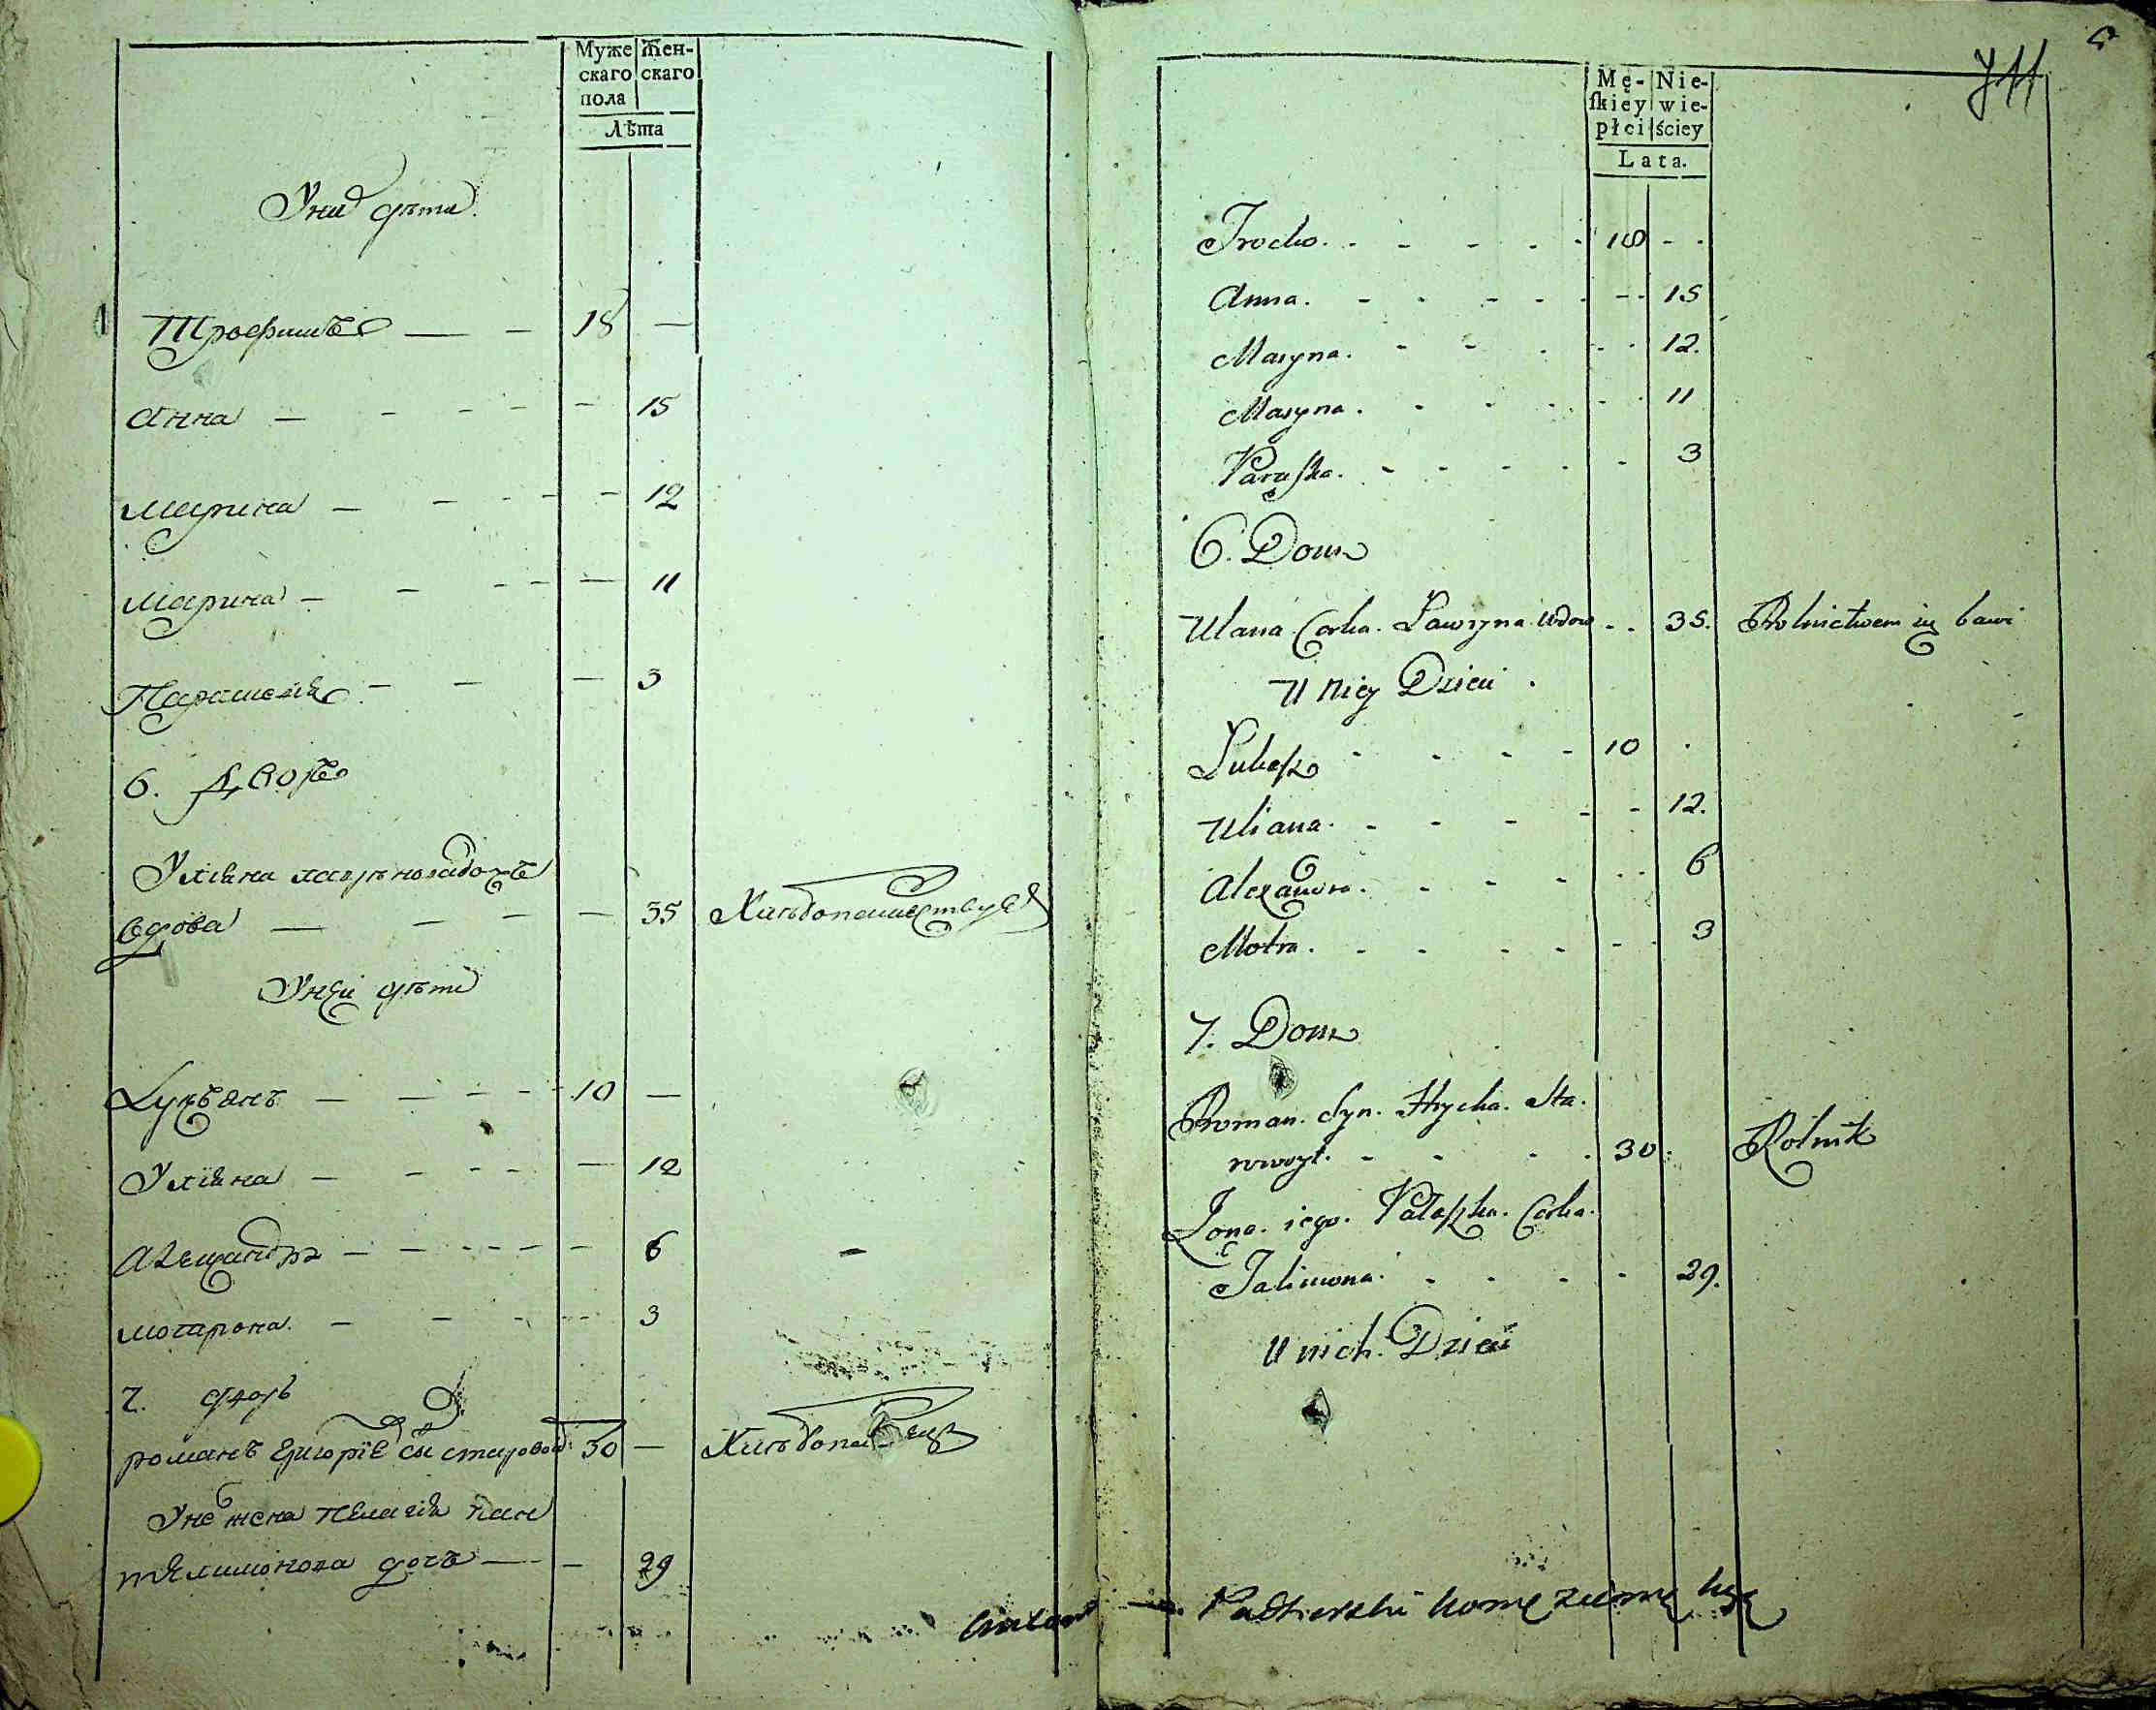 Муже Жен-
скаго скаго
пола
Лѣта
У них дети
Трофимъ — — 18 —
Анна — - - - — 15
Марина — - - - — 12
Марина — - - - — 11
Параскевия - - — 3
6. Дворъ
Улияна Лаврѣнова дочъ
вдова — - - — 35 Хлебопашествуетъ
У ней дѣти
Лукъянъ — — - - 10 —
Улияна — - - - — 12
Александра — - - - - — 6
Мотрона. — - - - 3
7. дворъ
Романъ Григорие сы старовой 30 — Хлебопашецъ
У не жена Пелагия пан
телимонова дочъ — — 29
Mę- Nie-
ſkiey wie-
płci ściey
Lata.
711
5
Trocho. - - - - - 18 - -
Anna. - - - - - - - 15
Maryna. - - - - - 12.
Maryna. - - - - - 11
Paraſka. - - - - - 3
6. Dom
Ulana Corka. Ławryna. Wdow - - 35. Rolnictwem się bawi
U Niey Dzieci.
Łukaſz - - - - 10 .
Uliana. - - - - - 12.
Alexandra. - - - - - 6
Motra. - - - - - - 3
7. Dom
Roman. Syn. Hrycka. Sta.
rowoyt. - - - - 30. Rolnik
Zona. iego. Pałaſzka. Corka.
Talimona. - - - - - 29.
U nich. Dzieci